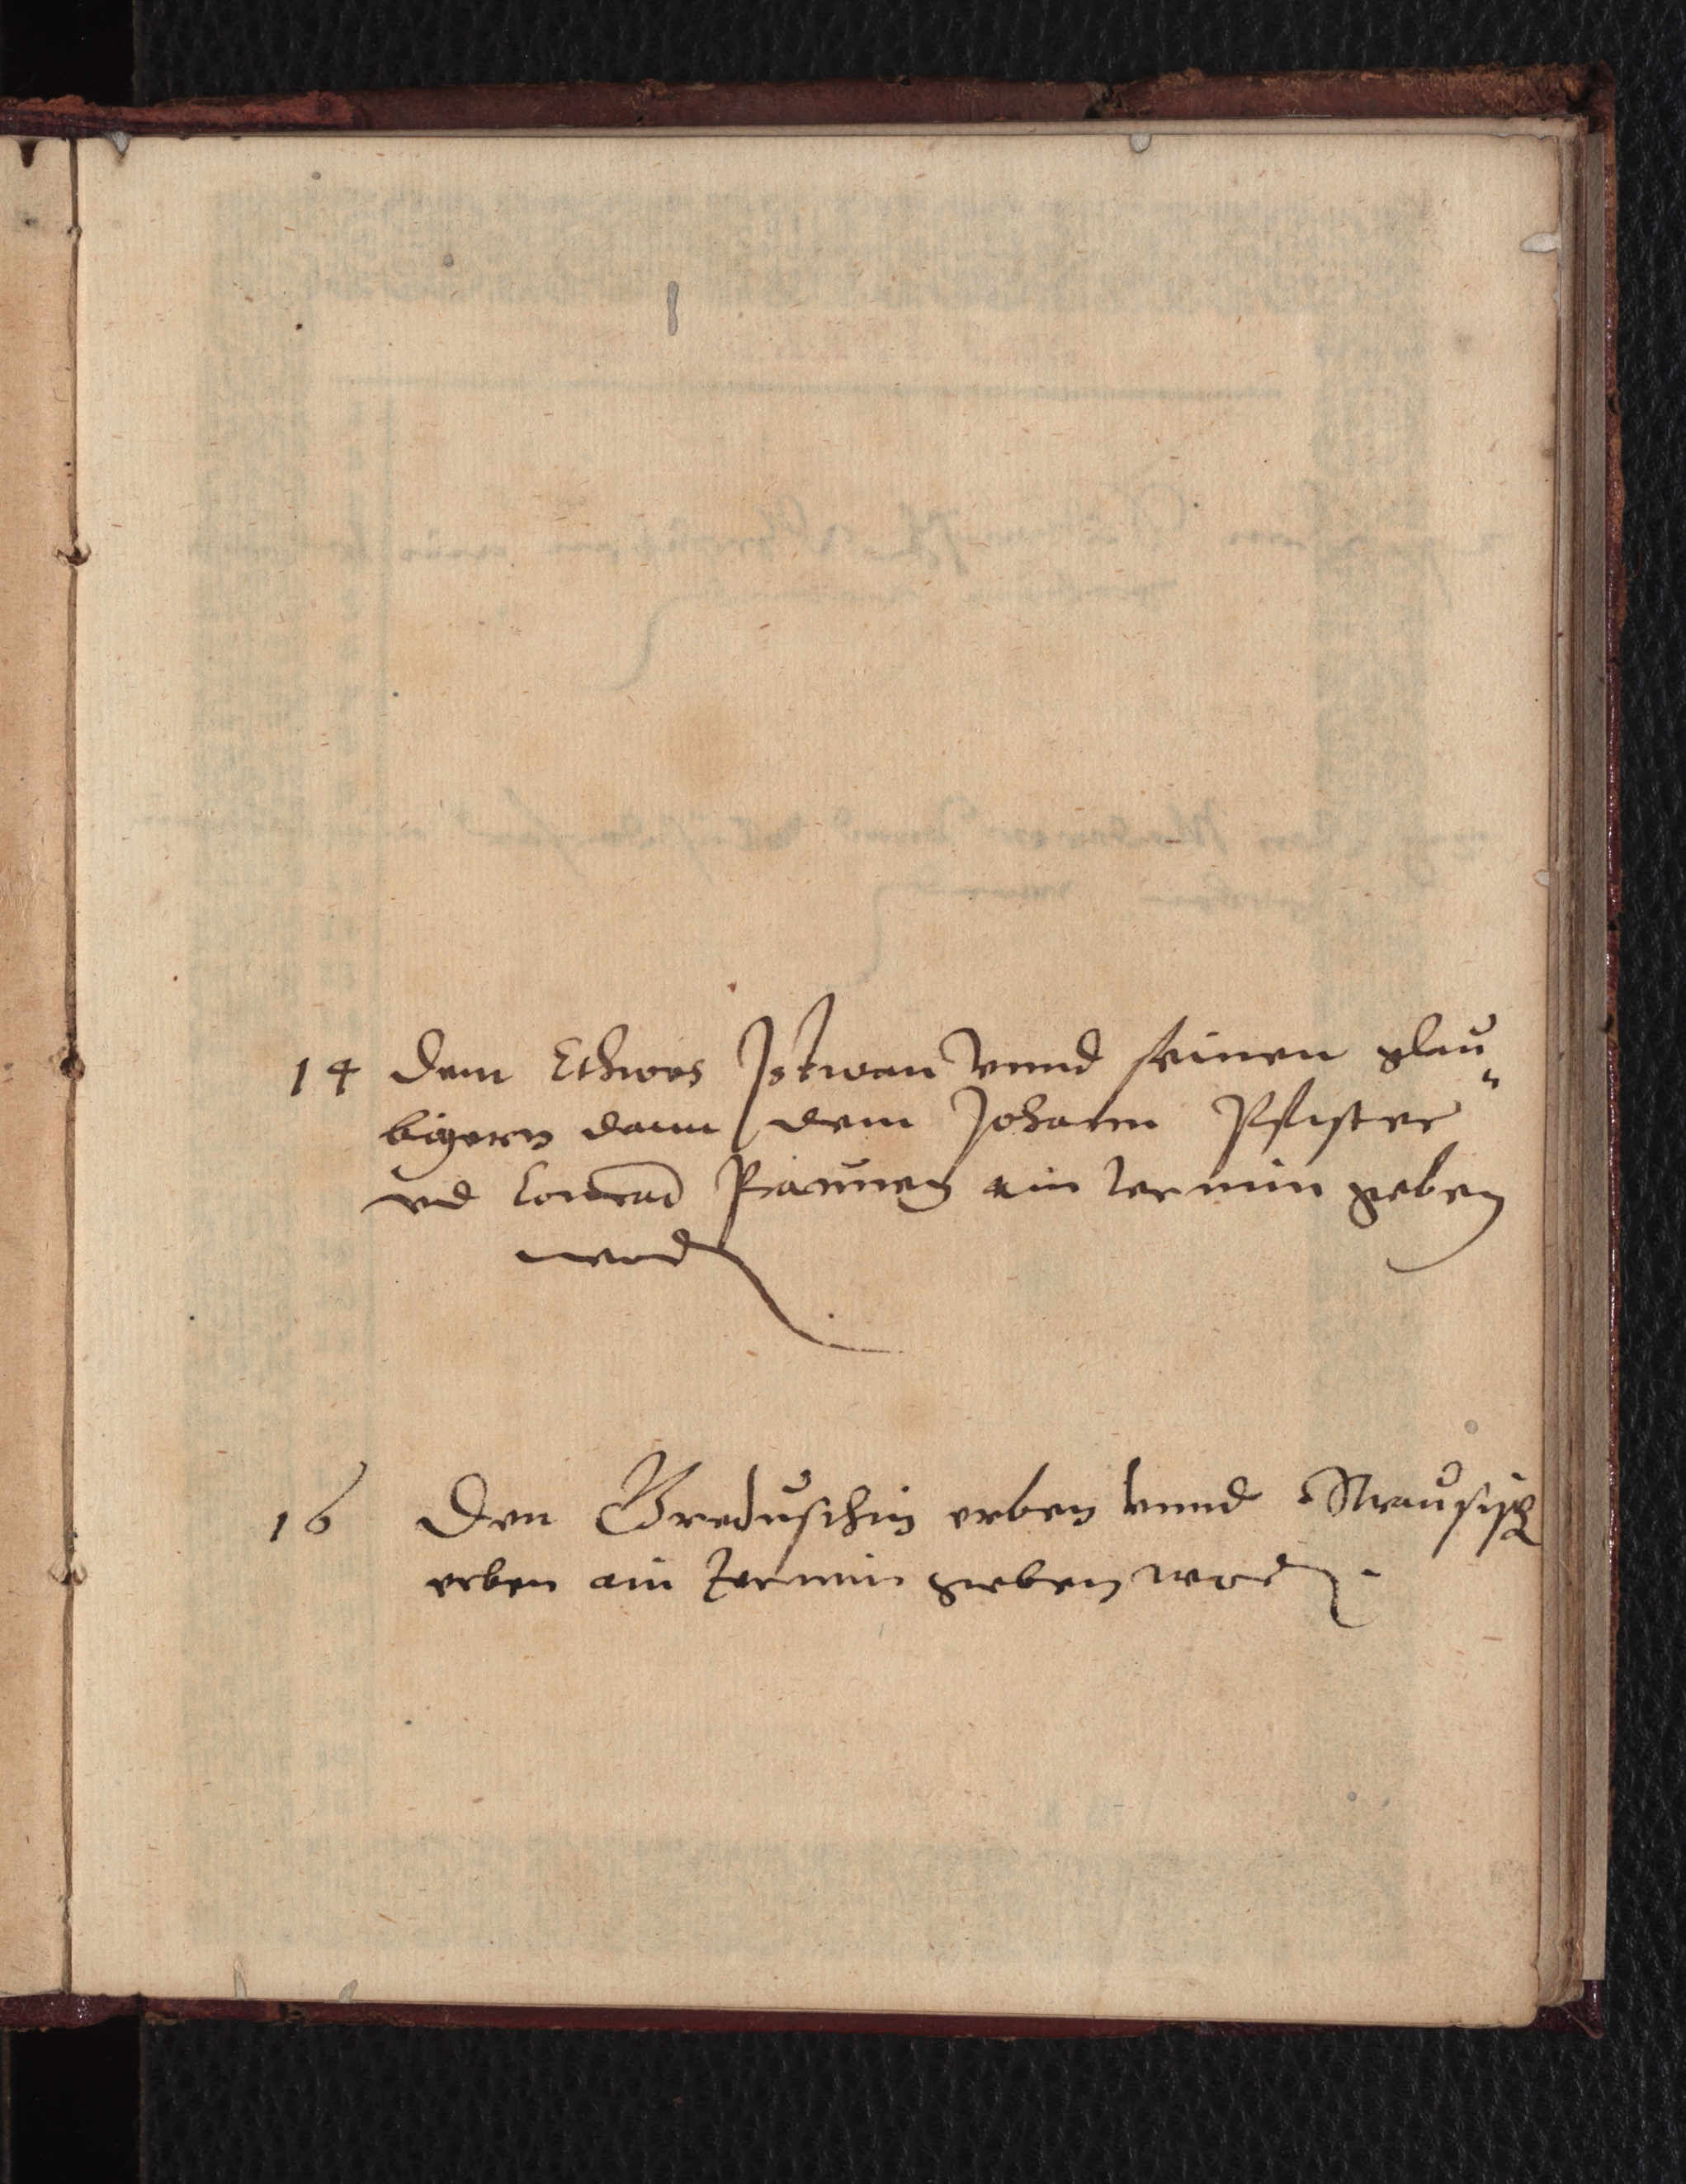 14 dem Ethwes Istwan vnnd seinen glau„
bigern dann dem Johann Pfister
vnd Conrad Praunen ein termin geben
word
16 Den Greduschin erben vnnd Strausisch
erben ain termin geben word.